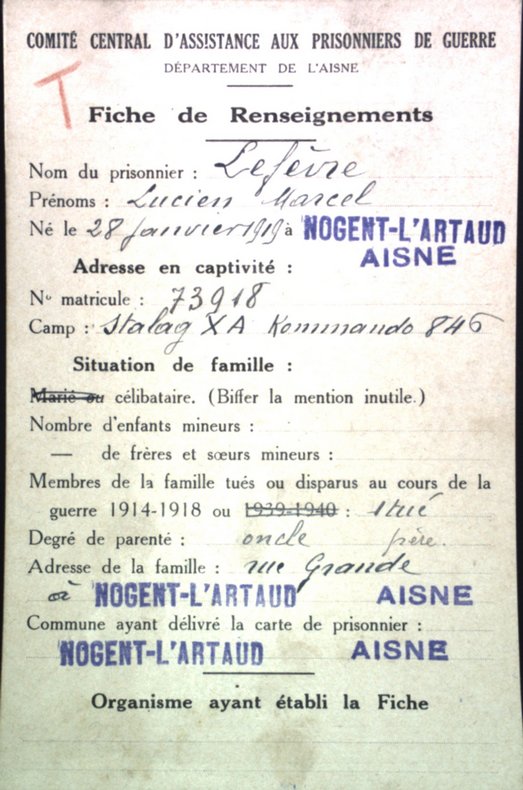 COMITÉ CENTRAL D'ASSISTANCE AUX PRISONNIERS DE GUERRE
DÉPARTEMENT DE L'AISNE
T
Fiche de Renseignements
Nom du prisonnier : Lefèvre
Prénoms : Lucien Marcel
Né le 28 Janvier 1919 à NOGENT-L'ARTAUD
AISNE
Adresse en captivité :
No matricule : 73918
Camp : Stalag XA Kommando 846
Situation de famille :
Marié ou célibataire. (Biffer la mention inutile.)
Nombre d'enfants mineurs :
— de frères et sœurs mineurs :
Membres de la famille tués ou disparus au cours de la
guerre 1914-1918 ou 1939-1940 : 1 tué
Degré de parenté : oncle père.
Adresse de la famille : rue Grande
à NOGENT-L'ARTAUD AISNE
Commune ayant délivré la carte de prisonnier :
NOGENT-L'ARTAUD AISNE
Organisme ayant établi la Fiche